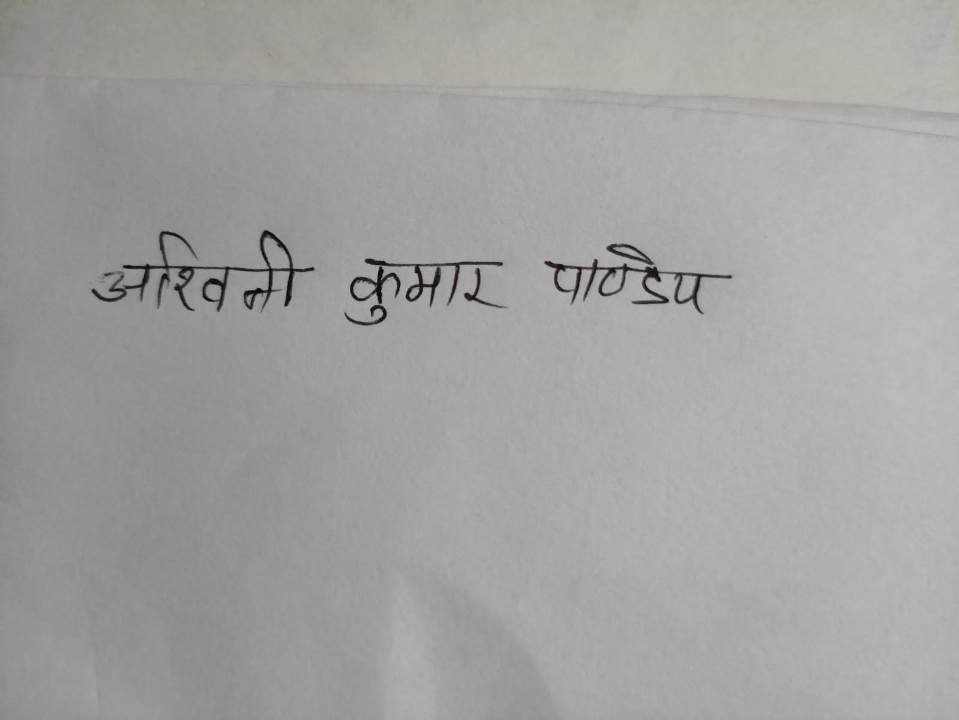 अश्विनी कुमार पाण्डेय